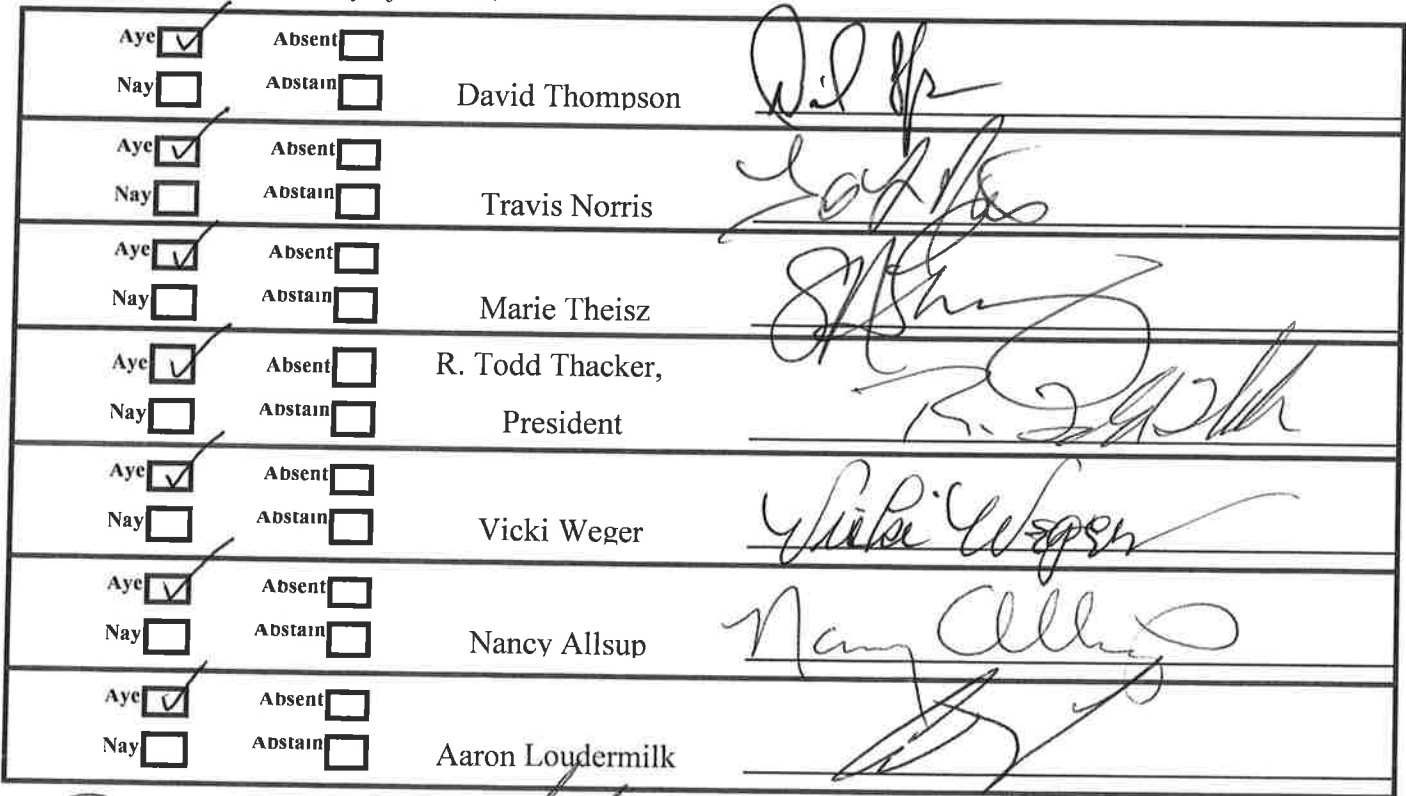 Aye ✓ Absent
Nay Abstain David Thompson
Aye ✓ Absent
Nay Abstain Travis Norris
Aye ✓ Absent
Nay Abstain Marie Theisz
Aye ✓ Absent R. Todd Thacker,
Nay Abstain President
Aye ✓ Absent
Nay Abstain Vicki Weger Vicki Weger
Aye ✓ Absent
Nay Abstain Nancy Allsup Nancy Allsup
Aye ✓ Absent
Nay Abstain Aaron Loudermilk